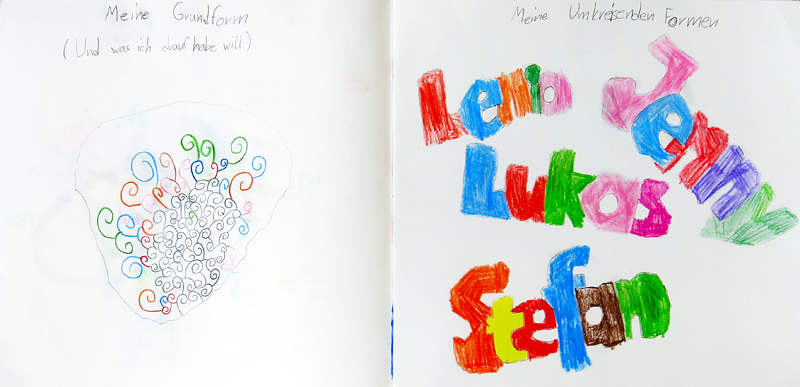 Meine Grundform
(Und was ich drauf habe will)
Meine Umkreisenden Formen
Lenio
Jenny
Lukas
Stefan